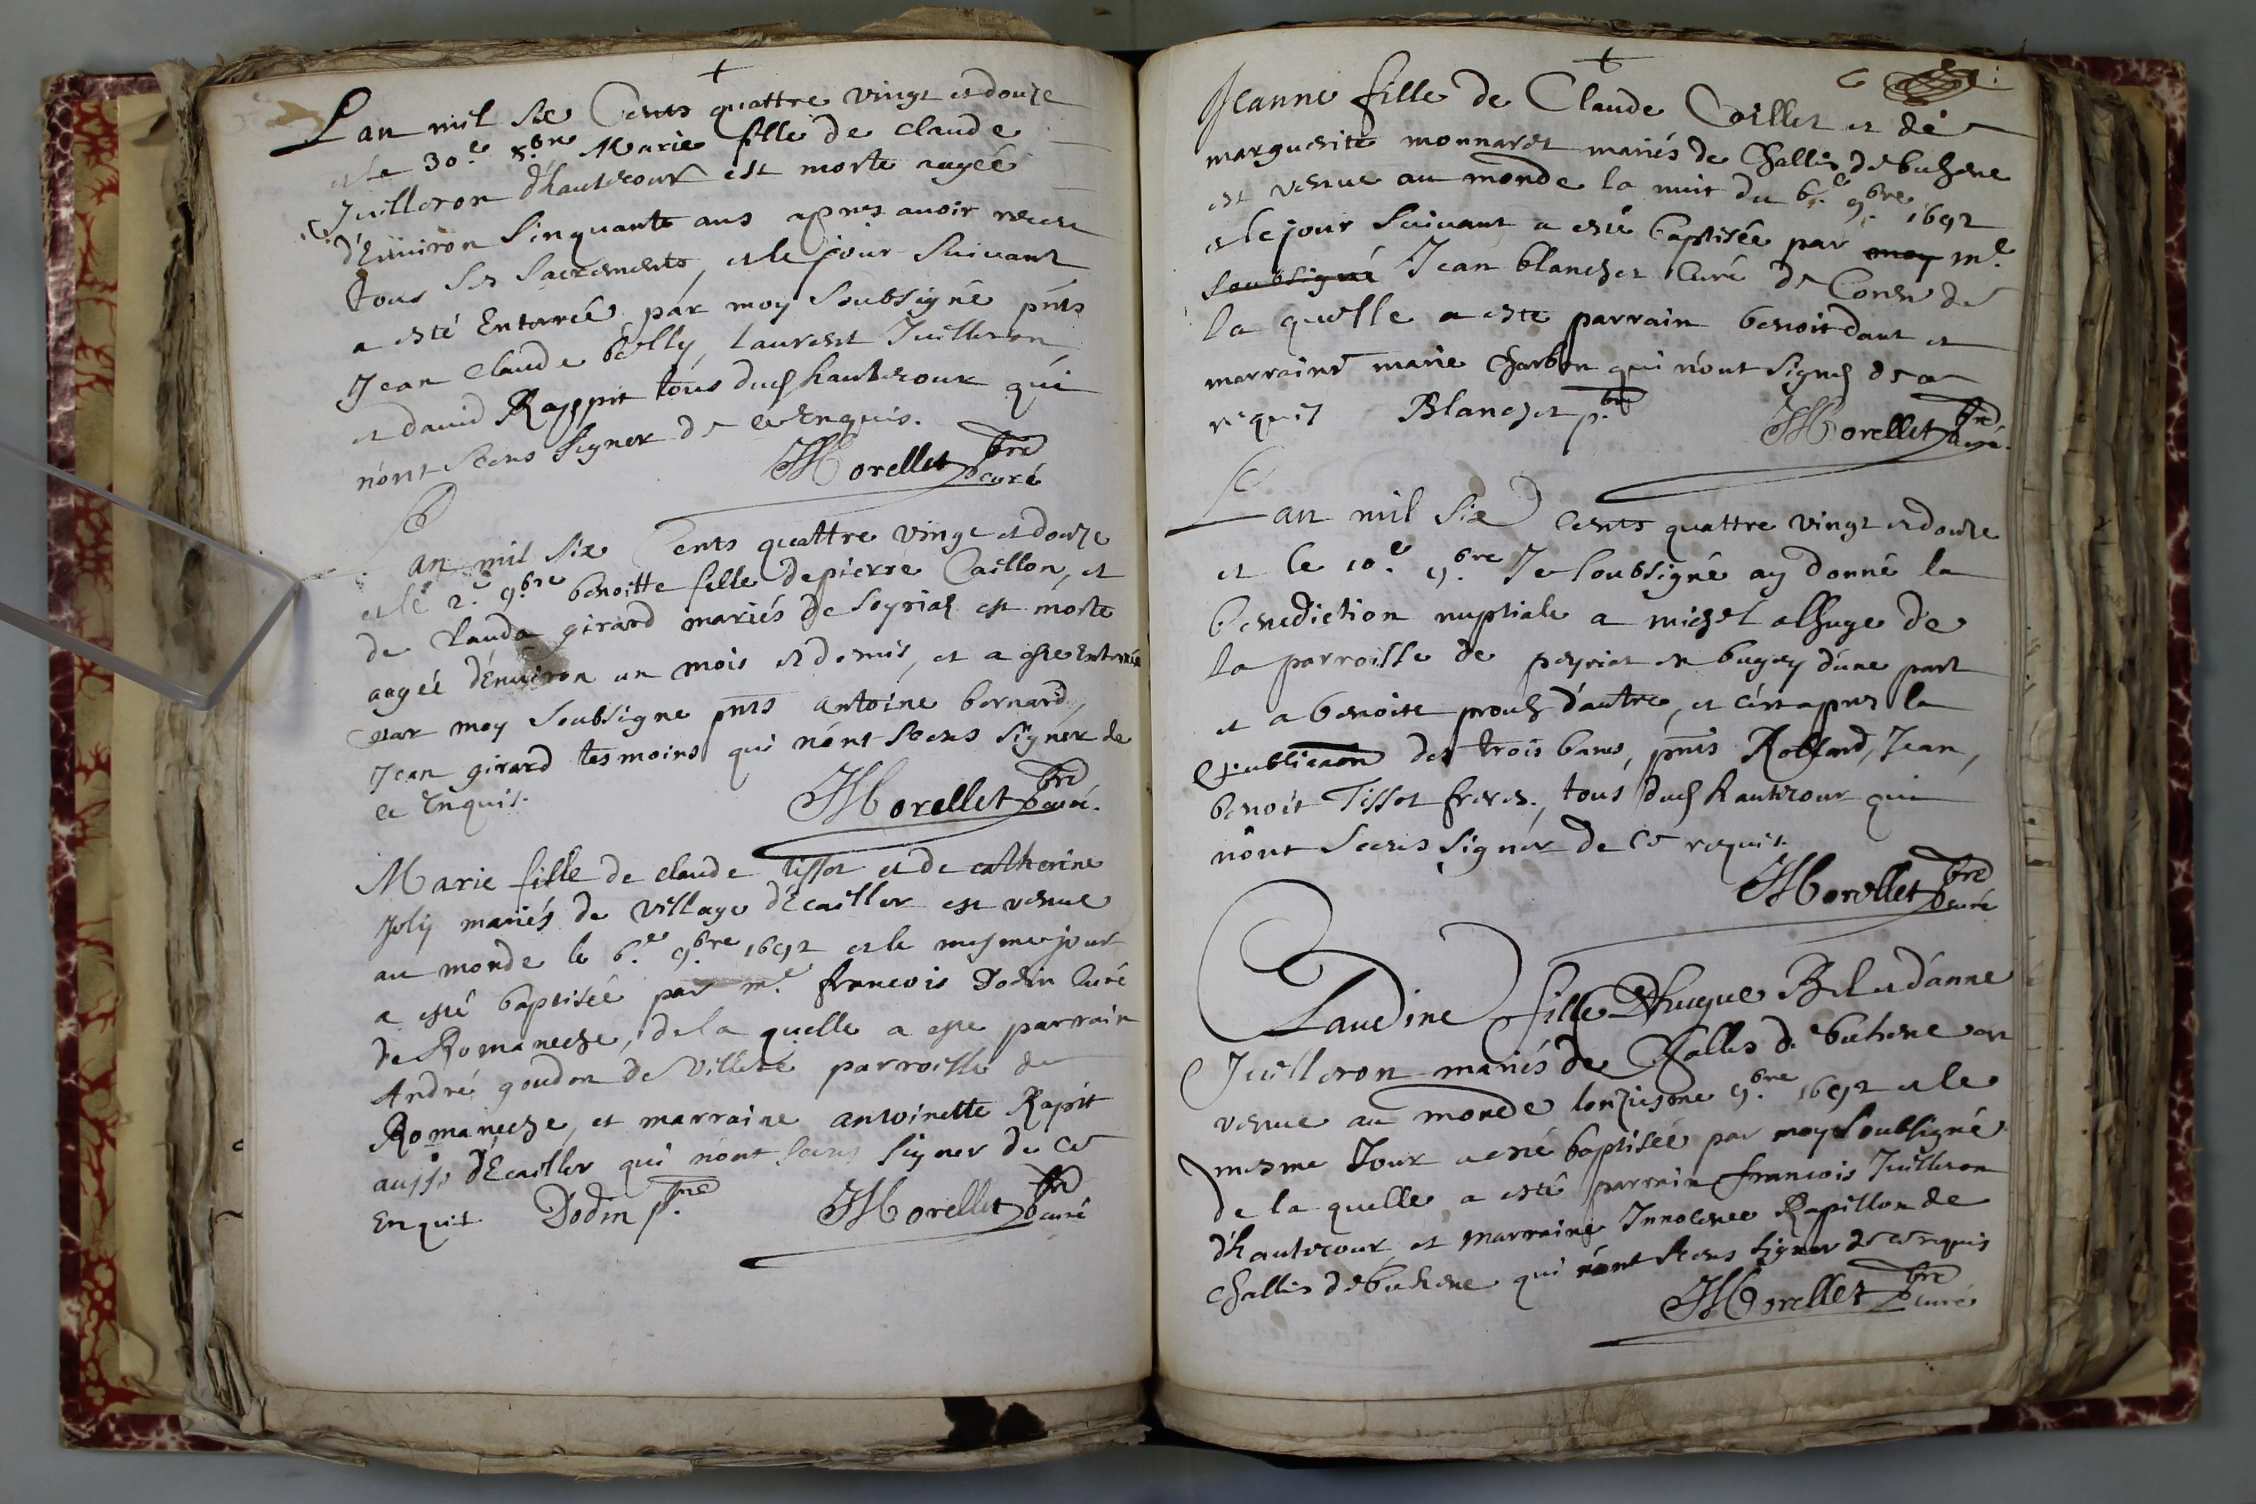 +
L an mil six Cents quattre vingt et douze
et le 30.e 8.bre Marie fille de claude
Juilleron d'hautecour est morte aagéé
d'Environ Sinquante ans apres avoir receu
tous ses sacrements, et le jour suivant
a esté Enterréé par moy soubsigné pnts
Jean Claude belly, Laurent Juilleron
et david Rappit tous dud hautecour qui
n'ont sceus signer de ce Enquis.
JMorellet pbre curé
L
an mil six Cents quattre vingt et douze
et le 2.e 9.bre benoitte fille de pierre Caillon, et
de Clauda girard mariés de Soyriad est morte
aagéé d'Environ un mois et demis, et a esté Enterréé
par moy soubsigne pnts antoine bernard,
Jean girard tesmoins qui n'ont sceus signer de
ce Enquis.
JMorellet pbre curé.
Marie fille de claude tissot et de catherine
Joly mariés de village d'Ecailler est venue
au monde le 6.e 9.bre 1692 et le mesme jour
a esté baptiséé par m.e francois Dodin Curé
de Romaneche, de la quelle a esté parrain
André goudon de Villete parroisse de
Romaneche, et marraine antoinette Rapit
aussi d'Ecailler qui n'ont sceus signer de ce
Enquit Dodin p.bre JMorellet pbre curé
+
6
Jeanne fille de Claude Coillet et de
marguerite monnaret mariés de Challes de buhene
est venue au monde la nuit du 6.e 9.bre 1692
et le jour suivant a esté baptisée par moy m.e
soubsigné Jean blanchet Curé de de
la quelle a esté parrain benoit dant et
marraine marie Charbon qui n'ont signes de ce
requis Blanchet p.bre JMorellet pbre curé.
L
an mil six Cents quattre vingt et douze
et le 10.e 9.bre Je soubsigné ay donné la
benediction nuptiale a michel alhuge de
la parroisse de peyriat en bugey d'une part
et a benoite d'autre, et c'est apres la
publicaôn des trois bans, pnts Rolland, Jean,
benoit Tissot freres, tous dud hautecour qui
n'ont sceus signer de ce requis.
JMorellet pbre curé
Claudine fille D'hugue Bel et d'anne
Juilleron mariés de Challes de buhene est
venue au monde lonziesme 9.bre 1692 et le
mesme Jour a esté baptisée par moy soubsigné
de la quelle a esté parrain francois Juilleron
d'hautecour et marraine Innocence Rapillon de
challes de buhene qui n'ont sceus signer de ce requis
JMorellet pbre curé